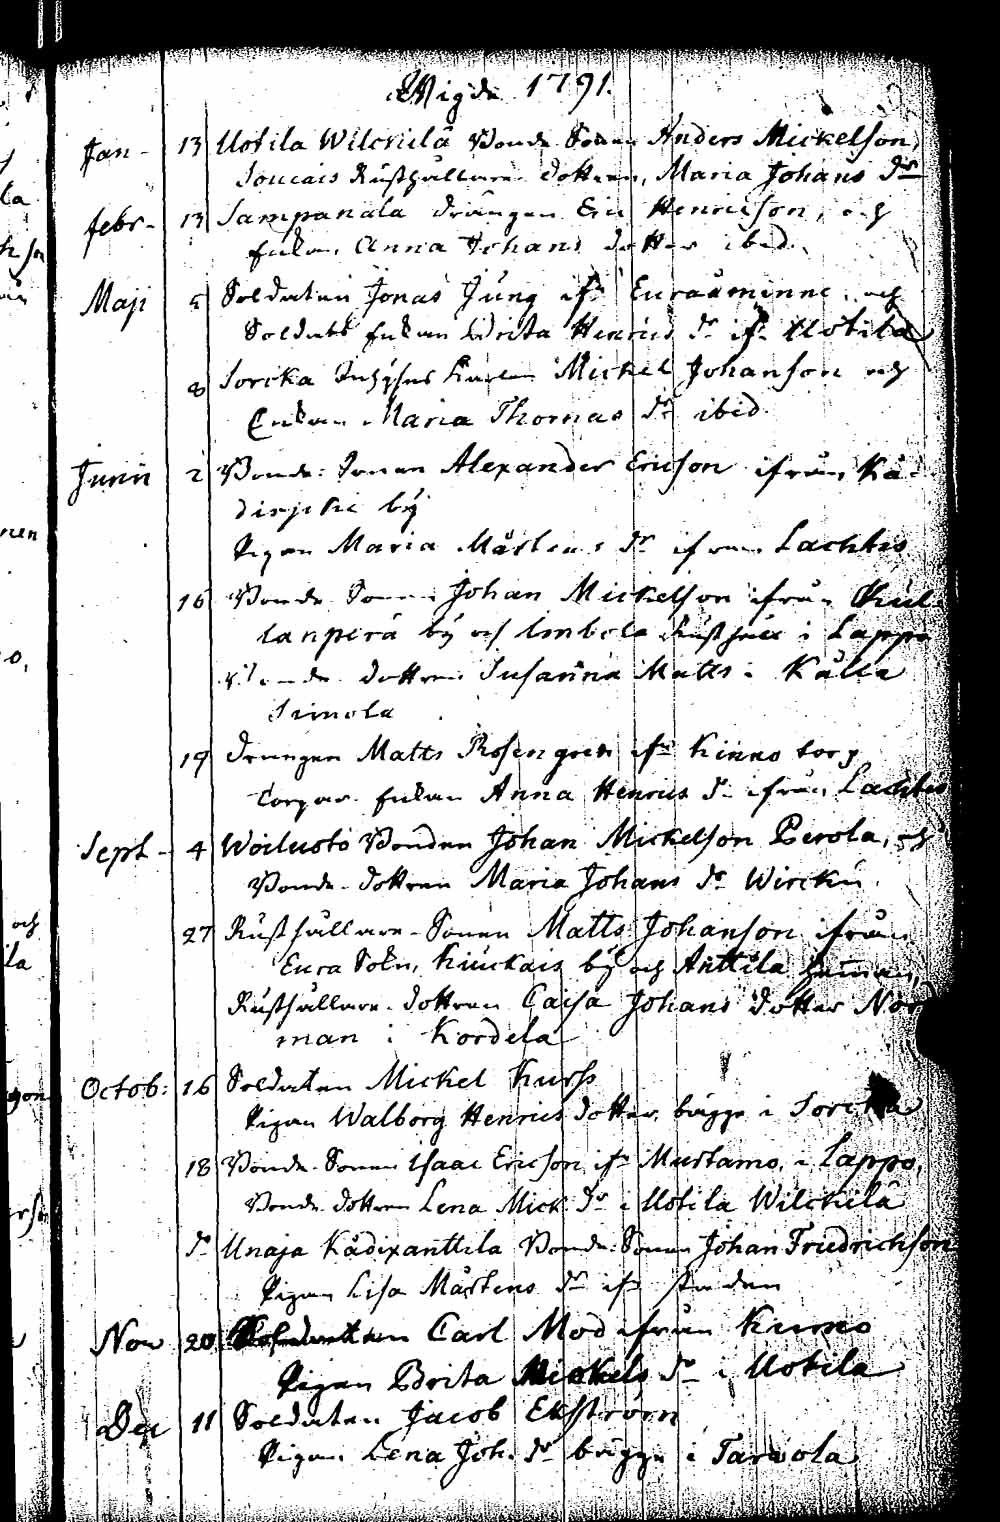 Wigde 1791.
Jan - 13 Uotila Wilckilä Bonde Sonen Anders Mickelson,
Soucais Rusthållare dottren, Maria Johans dr
febr - 13 Sampanala drängen Eric Henricson, och
Enkan Anna Johans dotter ibid.
Maji 5 Soldaten Jonas Jung ifr Euraåminne, och
Soldats Enkan Brita Henrics dr ifr Uotila
8 Sorcka Inhyses Karlen Mickel Johanson och
Enkan Maria Thomas dr ibid
Junii 2 Bonde: Sonen Alexander Ericson ifrån Kå-
by
Pigan Maria Mårtens dr ifrån Lachtis
16 Bonde Sonen Johan Mickelson ifrån Kul-
lanperä by och Rusthåll i Lappo
Bonde dottren Susanna Matts i Kålla
Simola
19 Drängen Matts Rosengren ifr Kinno torp
Torpar Enkan Anna Henrics dr ifrån Lachtis
Sept - 4 Woiluoto Bonden Johan Mickelson Perola, och
Bonde dottren Maria Johans dr Wircku
27 Rusthållare-Sonen Matts Johanson ifrån
Eura Sokn, Kiuckais by och Anttila hemman,
Rusthållare dottren Caisa Johans dotter Nord
man i Kordela
Octob: 16 Soldaten Mickel Kurss
Pigan Walborg Henrics dotter, bägge i Sorcka
18 Bonde-Sonen Isaac Ericson, ifr Murtamo, i Lappo,
Bonde dottren Lena Mick. dr i Uotila Wilckilä
dr Unaja Kådixanttila Bonde-Sonen Johan Friedrichson
Pigan Lisa Mårtens dr ifr staden
Nov 20 Soldatten Carl Mod ifrån Kumo
Pigan Brita Mickels dr i Uotila
Dec 11 Soldaten Jacob Ekström
Pigan Lena Joh. dr bägge i Tarvola